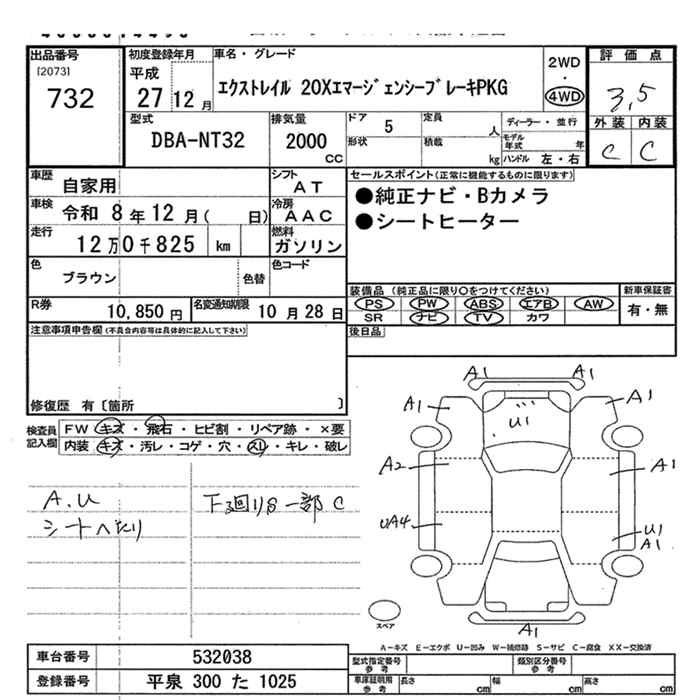 出品番号
[2073]
732
初度登録年月
平成
27 12 月
車名・グレード
エクストレイル 20Xエマージェンシーブレーキ PKG
2WD
・
4WD
評価点
3,5
外装 内装
C C
型式
DBA-NT32
排気量
2000
CC
ドア 5
形状
定員 人
積載 kg
ディーラー・並行
モデル年式 年
ハンドル 左・右
車歴 自家用
シフト AT
車検 令和 8 年 12 月( 日)
冷房 AAC
走行 12万0千825 km
燃料 ガソリン
色 ブラウン 色替
色コード
R券 10,850 円
名変通知期限 10 月 28 日
セールスポイント(正常に機能するものに限ります)
●純正ナビ・Bカメラ
●シートヒーター
装備品 (純正品に限り○をつけてください)
PS PW ABS エアB AW
SR ナビ TV カワ
新車保証書
有・無
後日品
注意事項申告欄(不具合内容等は具体的に記入して下さい)
修復歴 有〔箇所 〕
検査員記入欄
FW キズ・飛石・ヒビ割・リペア跡・×要
内装 キズ・汚レ・コゲ・穴・スレ・キレ・破レ
A.U
シートへたり
下廻りS一部C
A1 A1
A1 A1
U1
A2 A1
UA4 U1
A1
A1
スペア
A-キズ E-エクボ U-凹み W-補修跡 S-サビ C-腐食 XX-交換済
車台番号 532038
登録番号 平泉 300 た 1025
型式指定番号
参考
類別区分番号
参考
車庫証明用
参考
長さ cm
幅 cm
高さ cm